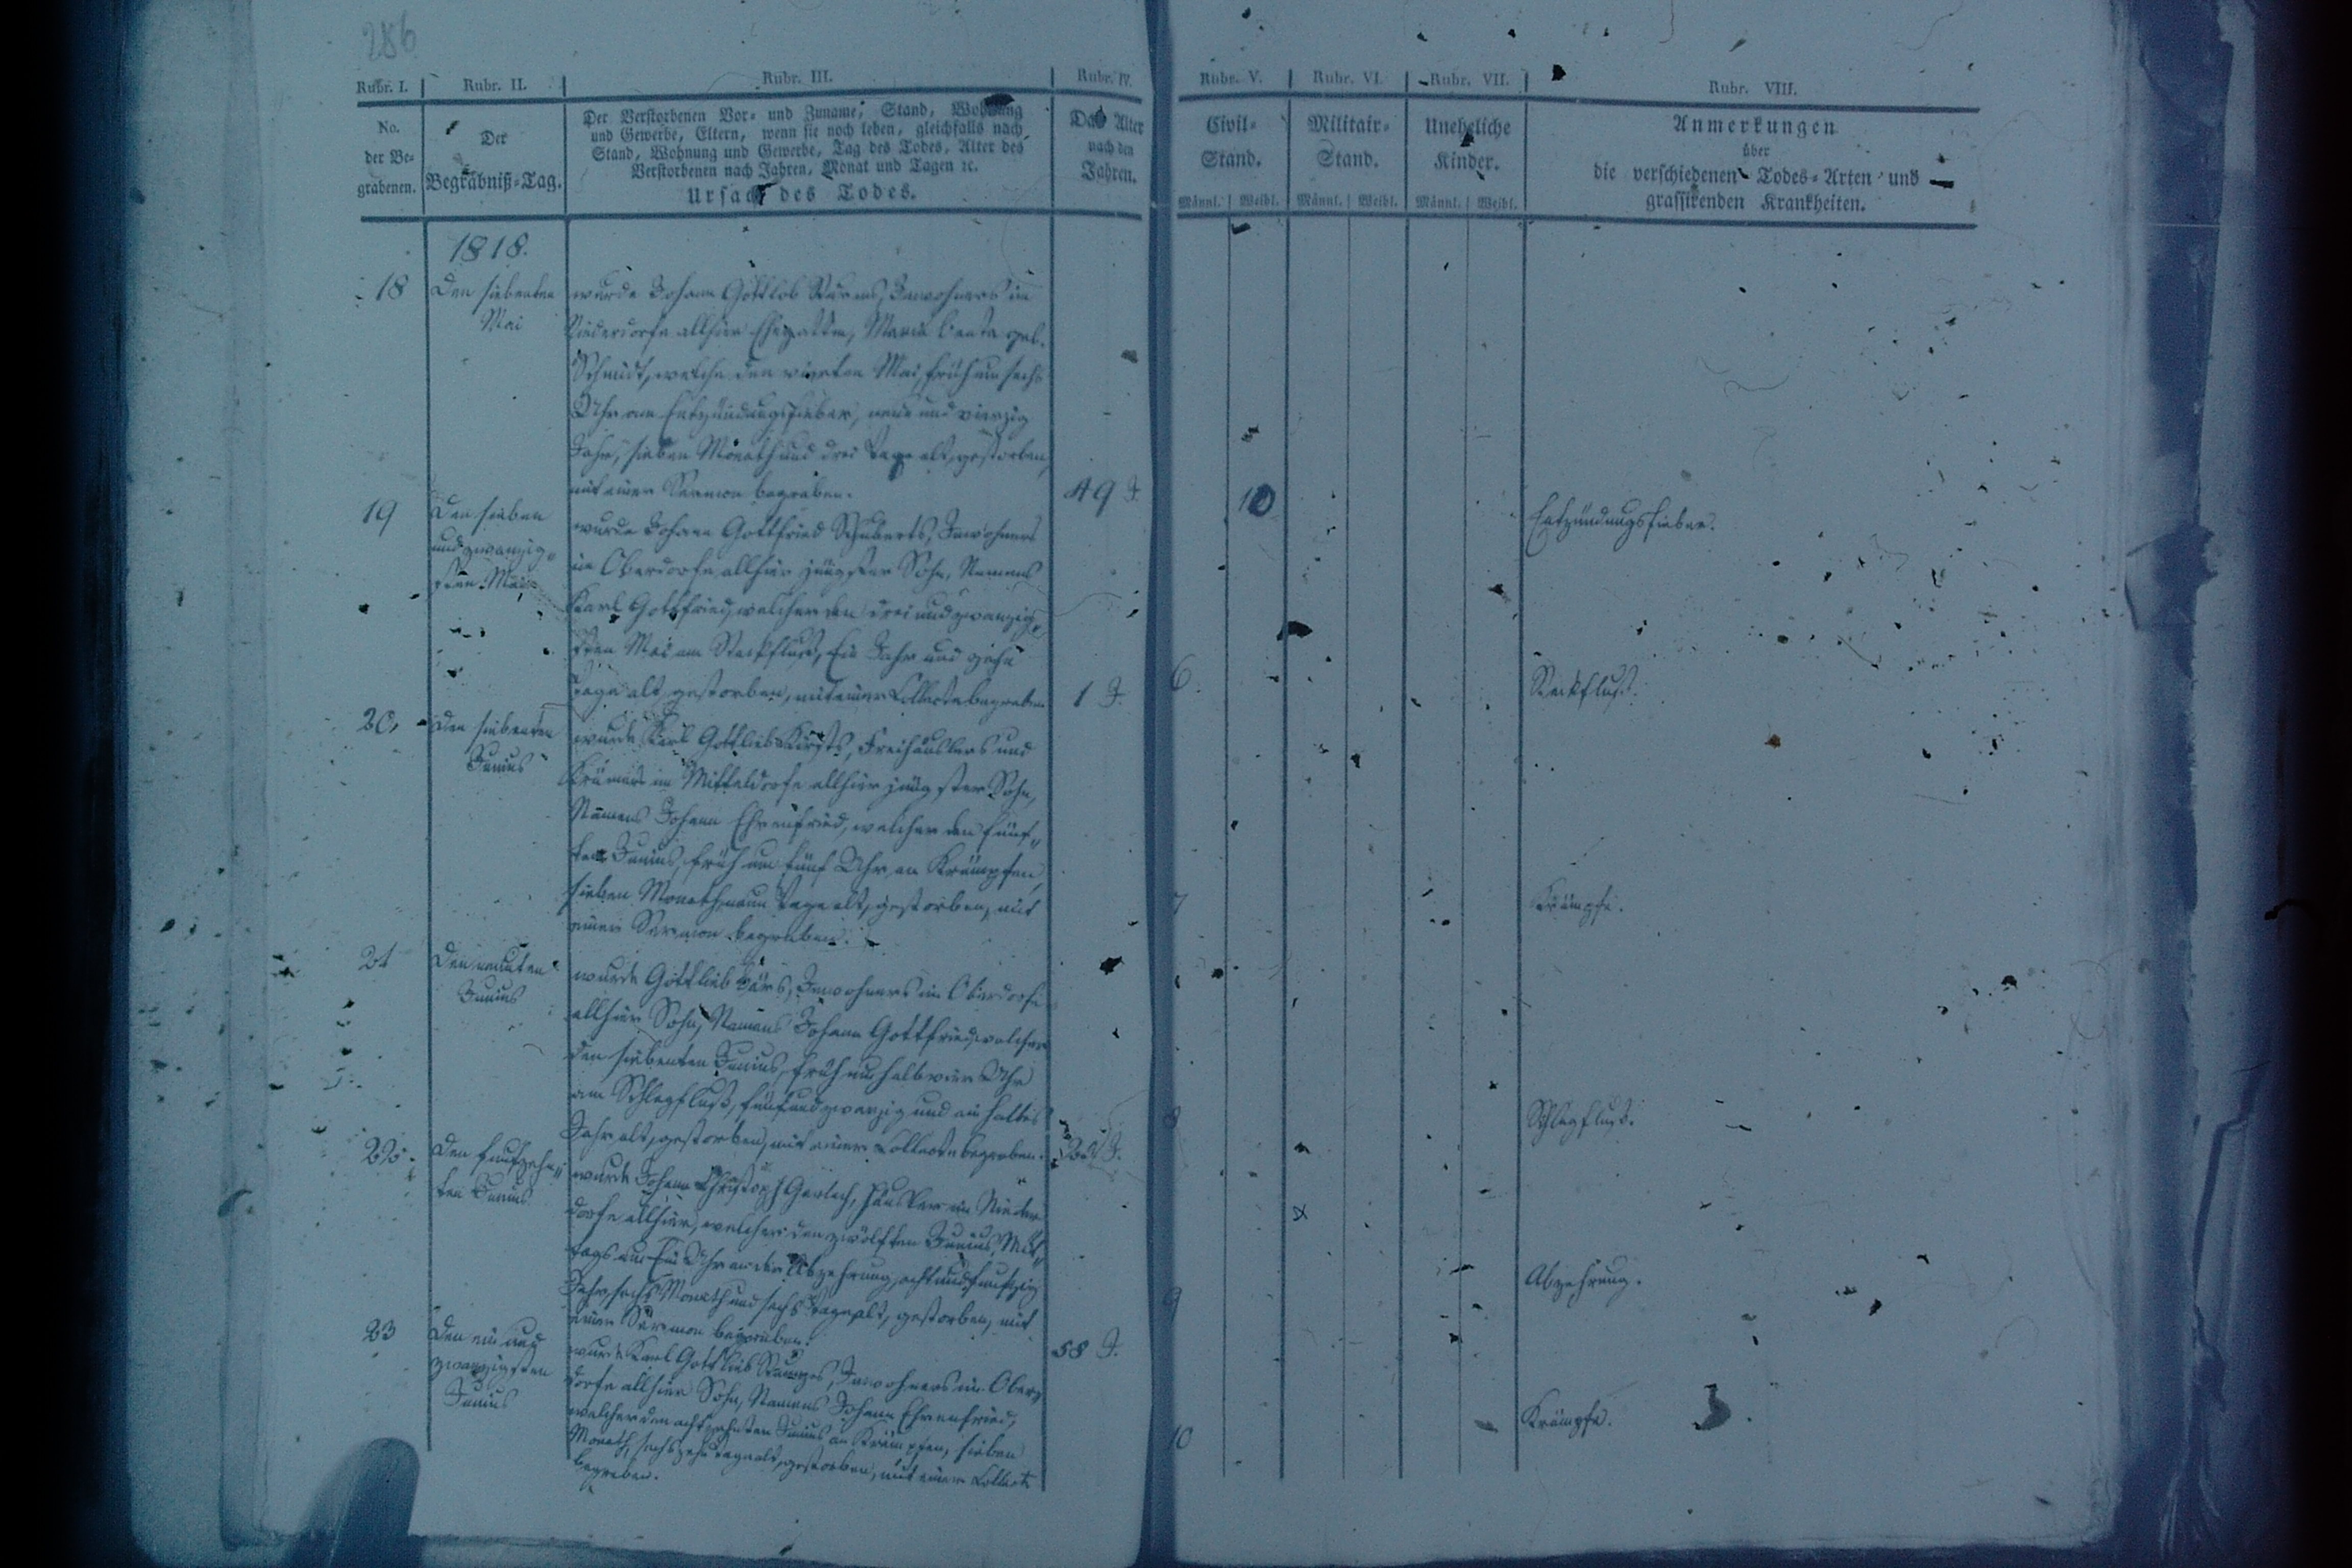 286
Rubr. I. Rubr. II. Rubr. III. Rubr. IV. Rubr. V. Rubr. VI. Rubr. VII. Rubr. VIII.
No.
der Be-
grabenen.
Der
Begräbniß-Tag.
Der Verstorbenen Vor- und Zuname, Stand, Wohnung
und Gewerbe, Eltern, wenn sie noch leben, gleichfalls nach
Stand, Wohnung und Gewerbe, Tag des Todes, Alter des
Verstorbenen nach Jahren, Monat und Tagen ꝛc.
Ursach des Todes.
Das Alter
nach den
Jahren.
Civil-
Stand.
Männl. Weibl.
Militair-
Stand.
Männl. Weibl.
Uneheliche
Kinder.
Männl. Weibl.
Anmerkungen
über
die verschiedenen Todes-Arten und
grassirenden Krankheiten.
1818.
18
Den siebenten
Mai
wurde Johann Gottlob Inwohners im
Niederdorfe allhier Ehegattin, Maria Beata geb.
Schmidt, welche den vierten Mai, früh um sechs
Uhr am Entzündungsfieber, neun und vierzig
Jahr, sieben Monath und drei Tage alt, gestorben,
mit einer Sermon begraben.
49 J.
10
Entzündungsfieber.
19
Den sieben
und zwanzig-
sten Mai
wurde Johann Gottfried Schuberts, Inwohners
im Oberdorfe allhier jüngster Sohn, Namens
Karl Gottfried, welcher den drei und zwanzig-
sten Mai am Steckfluß, Ein Jahr und zehn
Tage alt, gestorben, mit einer Collecte begraben
1 J.
6
Steckfluß.
20.
Den siebenten
Junius
wurde Karl Gottlieb Freihäuslers und
Krämers im Mitteldorfe allhier jüngster Sohn,
Namens Johann Ehrenfried, welcher den fünf-
ten Junius, früh um fünf Uhr an Krämpfen,
sieben Monath, neun Tage alt, gestorben, mit
einer Sermon begraben.
7
Krämpfe.
21
Den neunten
Junius
wurde Gottlieb Inwohners im Oberdorfe
allhier Sohn, Namens Johann Gottfried, welcher
den siebenten Junius, früh um halb vier Uhr
am Schlagfluß, fünf und zwanzig und ein halbes
Jahr alt, gestorben, mit einer Collecte begraben.
8
Schlagfluß.
22.
Den funfzehn-
ten Junius
wurde Johann Christoph Gerlach, Häusler im Nieder
dorfe allhier, welcher den zwölften Junius, Mit-
tags um Ein Uhr an der Abzehrung, acht und funfzig
Jahr, sechs Monath und sechs Tage alt, gestorben, mit
einer Sermon begraben.
58 J.
9
Abzehrung.
23
Den ein und
zwanzigsten
Junius
wurde Karl Gottlieb Inwohners im Ober-
dorfe allhier Sohn, Namens Johann Ehrenfried,
welcher den achtzehnten Junius an Krämpfen, sieben
Monath, sechszehn Tage alt, gestorben, mit einer Collecte
begraben.
10
Krämpfe.